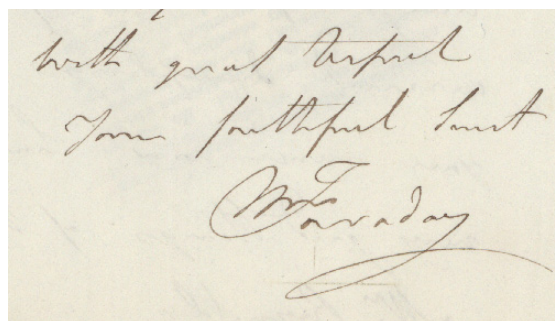 with great respect
Your faithful Servt
M Faraday